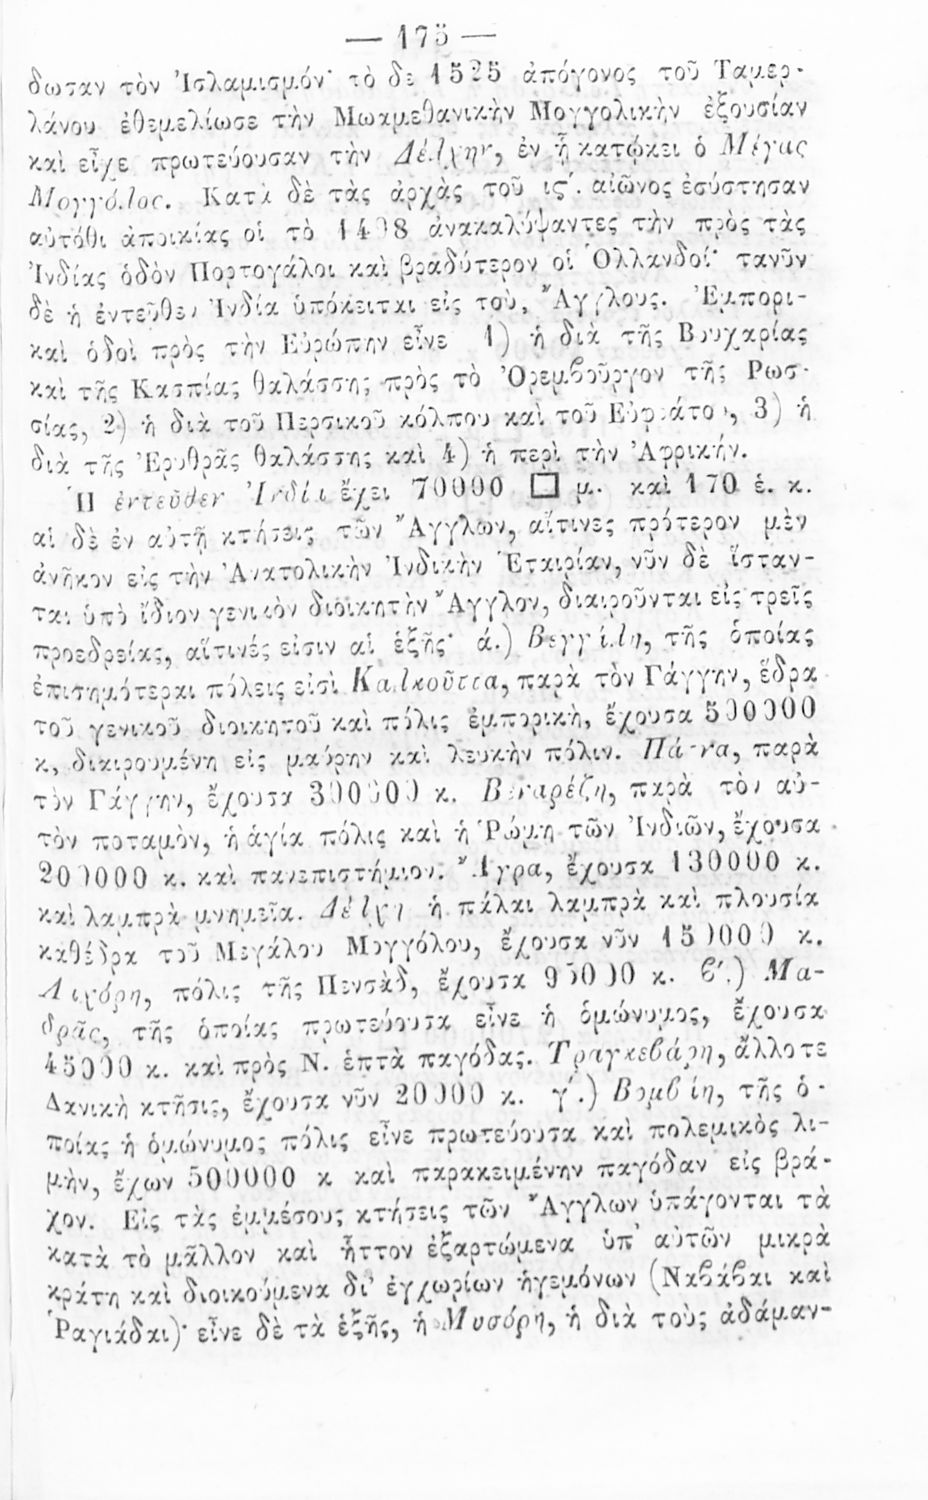 — 175 —
δωσαν τὸν Ἰσλαμισμόν· τὸ δὲ 1525 ἀπόγονος τοῦ Ταμερ-
λάνου ἐθεμελίωσε τὴν Μωαμεθανικὴν Μογγολικὴν ἐξουσίαν
καὶ εἶχε πρωτεύουσαν τὴν Δέλχην, ἐν ᾗ κατῴκει ὁ Μέγας
Μογγόλος. Κατὰ δὲ τὰς ἀρχὰς τοῦ ις΄. αἰῶνος ἐσύστησαν
αὐτόθι ἀποικίας οἱ τὸ 1498 ἀνακαλύψαντες τὴν πρὸς τὰς
Ἰνδίας ὁδὸν Πορτογάλοι καὶ βραδύτερον οἱ Ὁλλανδοί· τανῦν
δὲ ἡ ἐντεῦθεν Ἰνδία ὑπόκειται εἰς τοὺς Ἄγγλους. Ἐμπορι-
καὶ ὁδοὶ πρὸς τὴν Εὐρώπην εἶνε 1) ἡ διὰ τῆς Βουχαρίας
καὶ τῆς Κασπίας θαλάσσης πρὸς τὸ Ὀρεμβοῦργον τῆς Ρωσ-
σίας, 2) ἡ διὰ τοῦ Περσικοῦ κόλπου καὶ τοῦ Εὐφράτου, 3) ἡ
διὰ τῆς Ἐρυθρᾶς θαλάσσης καὶ 4) ἡ περὶ τὴν Ἀφρικήν.
Ἡ ἐντεῦθεν Ἰνδία ἔχει 70000 □ μ. καὶ 170 ἑ. κ.
αἱ δὲ ἐν αὐτῇ κτήσεις τῶν Ἄγγλων, αἵτινες πρότερον μὲν
ἀνῆκον εἰς τὴν Ἀνατολικὴν Ἰνδικὴν Ἑταιρίαν, νῦν δὲ ἵσταν-
ται ὑπὸ ἴδιον γενικὸν διοικητὴν Ἄγγλον, διαιροῦνται εἰς τρεῖς
προεδρείας, αἵτινές εἰσιν αἱ ἑξῆς· ά.) Βεγγάλη, τῆς ὁποίας
ἐπισημότεραι πόλεις εἰσὶ Καλκοῦττα, παρὰ τὸν Γάγγην, ἕδρα
τοῦ γενικοῦ διοικητοῦ καὶ πόλις ἐμπορικὴ, ἔχουσα 500000
κ, διαιρουμένη εἰς μαύρην καὶ λευκὴν πόλιν. Πάτνα, παρὰ
τὸν Γάγγην, ἔχουσα 300000 κ. Βεναρέζη, παρὰ τὸν αὐ-
τὸν ποταμὸν, ἡ ἁγία πόλις καὶ ἡ Ῥώμη τῶν Ἰνδιῶν, ἔχουσα
200000 κ. καὶ πανεπιστήμιον. Ἄγρα, ἔχουσα 130000 κ.
καὶ λαμπρὰ μνημεῖα. Δέλχη ἡ πάλαι λαμπρὰ καὶ πλουσία
καθέδρα τοῦ Μεγάλου Μογγόλου, ἔχουσα νῦν 150000 κ.
Λαχόρη, πόλις τῆς Πενσὰδ, ἔχουσα 95000 κ. β΄.) Μα-
δρᾶς, τῆς ὁποίας πρωτεύουσα εἶνε ἡ ὁμώνυμος, ἔχουσα
45000 κ. καὶ πρὸς Ν. ἑπτὰ παγόδας. Τραγκεβάρη, ἄλλοτε
Δανικὴ κτῆσις, ἔχουσα νῦν 20000 κ. γ΄.) Βομβάη, τῆς ὁ-
ποίας ἡ ὁμώνυμος πόλις εἶνε πρωτεύουσα καὶ πολεμικὸς λι-
μὴν, ἔχων 500000 κ καὶ παρακειμένην παγόδαν εἰς βρά-
χον. Εἰς τὰς ἐμμέσους κτήσεις τῶν Ἄγγλων ὑπάγονται τὰ
κατὰ τὸ μᾶλλον καὶ ἧττον ἐξαρτώμενα ὑπ' αὐτῶν μικρὰ
κράτη καὶ διοικούμενα δι' ἐγχωρίων ἡγεμόνων (Ναβάβαι καὶ
Ῥαγιάδαι)· εἶνε δὲ τὰ ἑξῆς, ἡ Μυσόρη, ἡ διὰ τοὺς ἀδάμαν-